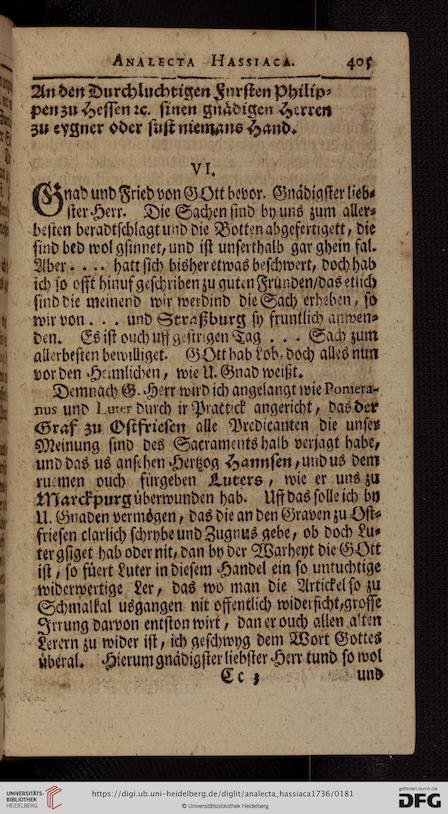 ANALECTA HASSIACA. 405
An den Durchluchtigen Fursten Philip-
pen zu Hessen ꝛc. sinen gnädigen Herren
zu eygner oder sust niemans Hand.
VI.
Gnad und Fried von GOtt bevor. Gnädigster lieb-
ster Herr. Die Sachen sind by uns zum aller-
besten beradtschlagt und die Botten abgefertigett, die
sind bed wol gsinnet, und ist unserthalb gar ghein fal.
Aber . . . . hatt sich bisher etwas beschwert, doch hab
ich so offt hinuf geschriben zu guten Fründen/das etlich
sind die meinend wir werdind die Sach erheben, so
wir von . . . und Straßburg sy fruntlich anwen-
den. Es ist ouch uff gestrigen Tag . . . Sach zum
allerbesten bewilliget. GOtt hab Lob, doch alles nun
vor den Heimlichen, wie U. Gnad weißt.
Demnach G. Herr wird ich angelangt wie Pomera-
nus und Luter durch ir Prattick angericht, das der
Graf zu Ostfriesen alle Predicanten die unser
Meinung sind des Sacraments halb verjagt habe,
und das us ansehen Hertzog Hannsen, und us dem
ruemen ouch fürgeben Luters, wie er uns zu
Marckpurg überwunden hab. Uff das solle ich by
U. Gnaden vermögen, das die an den Graven zu Ost-
friesen clarlich schrybe und Zugnus gebe, ob doch Lu-
ter gsiget hab oder nit, dan by der Warheyt die GOtt
ist, so füert Luter in diesem Handel ein so untuchtige
widerwertige Ler, das wo man die Artickel so zu
Schmalkal usgangen nit offentlich widerficht, grosse
Irrung darvon entston wirt, dan er ouch allen alten
Lerern zu wider ist, ich geschwyg dem Wort Gottes
überal. Hierum gnädigster liebster Herr tund so wol
Cc 3 und
UNIVERSITÄTS-
BIBLIOTHEK
HEIDELBERG
https://digi.ub.uni-heidelberg.de/diglit/analecta_hassiaca1736/0181
© Universitätsbibliothek Heidelberg
gefördert durch die
DFG